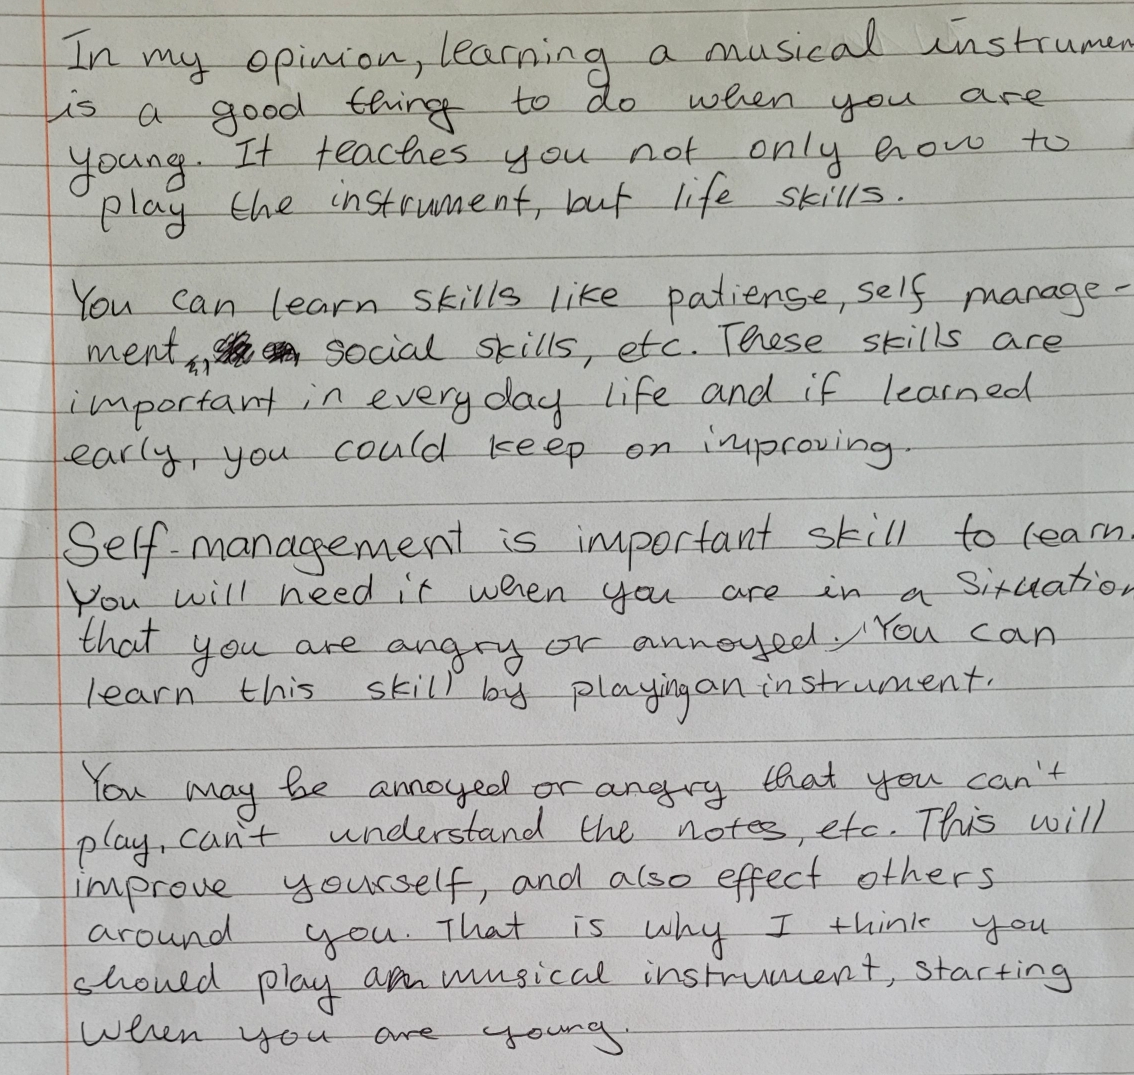 In my opinion, learning a musical instrumen
is a good thing to do when you are
young. It teaches you not only how to
play the instrument, but life skills.
You can learn skills like patiense, self manage-
ment, social skills, etc. These skills are
important in everyday life and if learned
early, you could keep on improving.
Self-management is important skill to learn.
You will need it when you are in a situation
that you are angry or annoyed. You can
learn this skill by playing an instrument.
You may be annoyed or angry that you can't
play, can't understand the notes, etc. This will
improve yourself, and also effect others
around you. That is why I think you
should play a musical instrument, starting
when you are young.